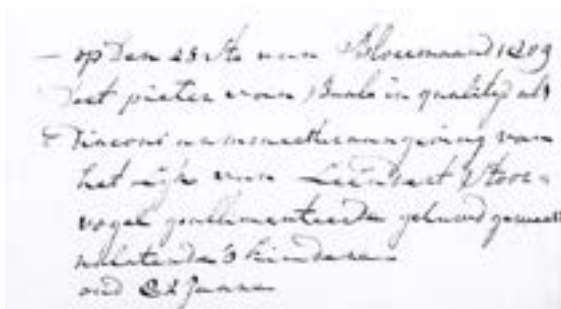 op Den 28ste van Bloeimaand 1809
Doet pieter van Baale in qualityd als
Diaconi aangiving van
het lijk van Leendert
vogel gealimenteerde gehuwd geweest
nalatende 3 kinderen
oud 82 Jaaren